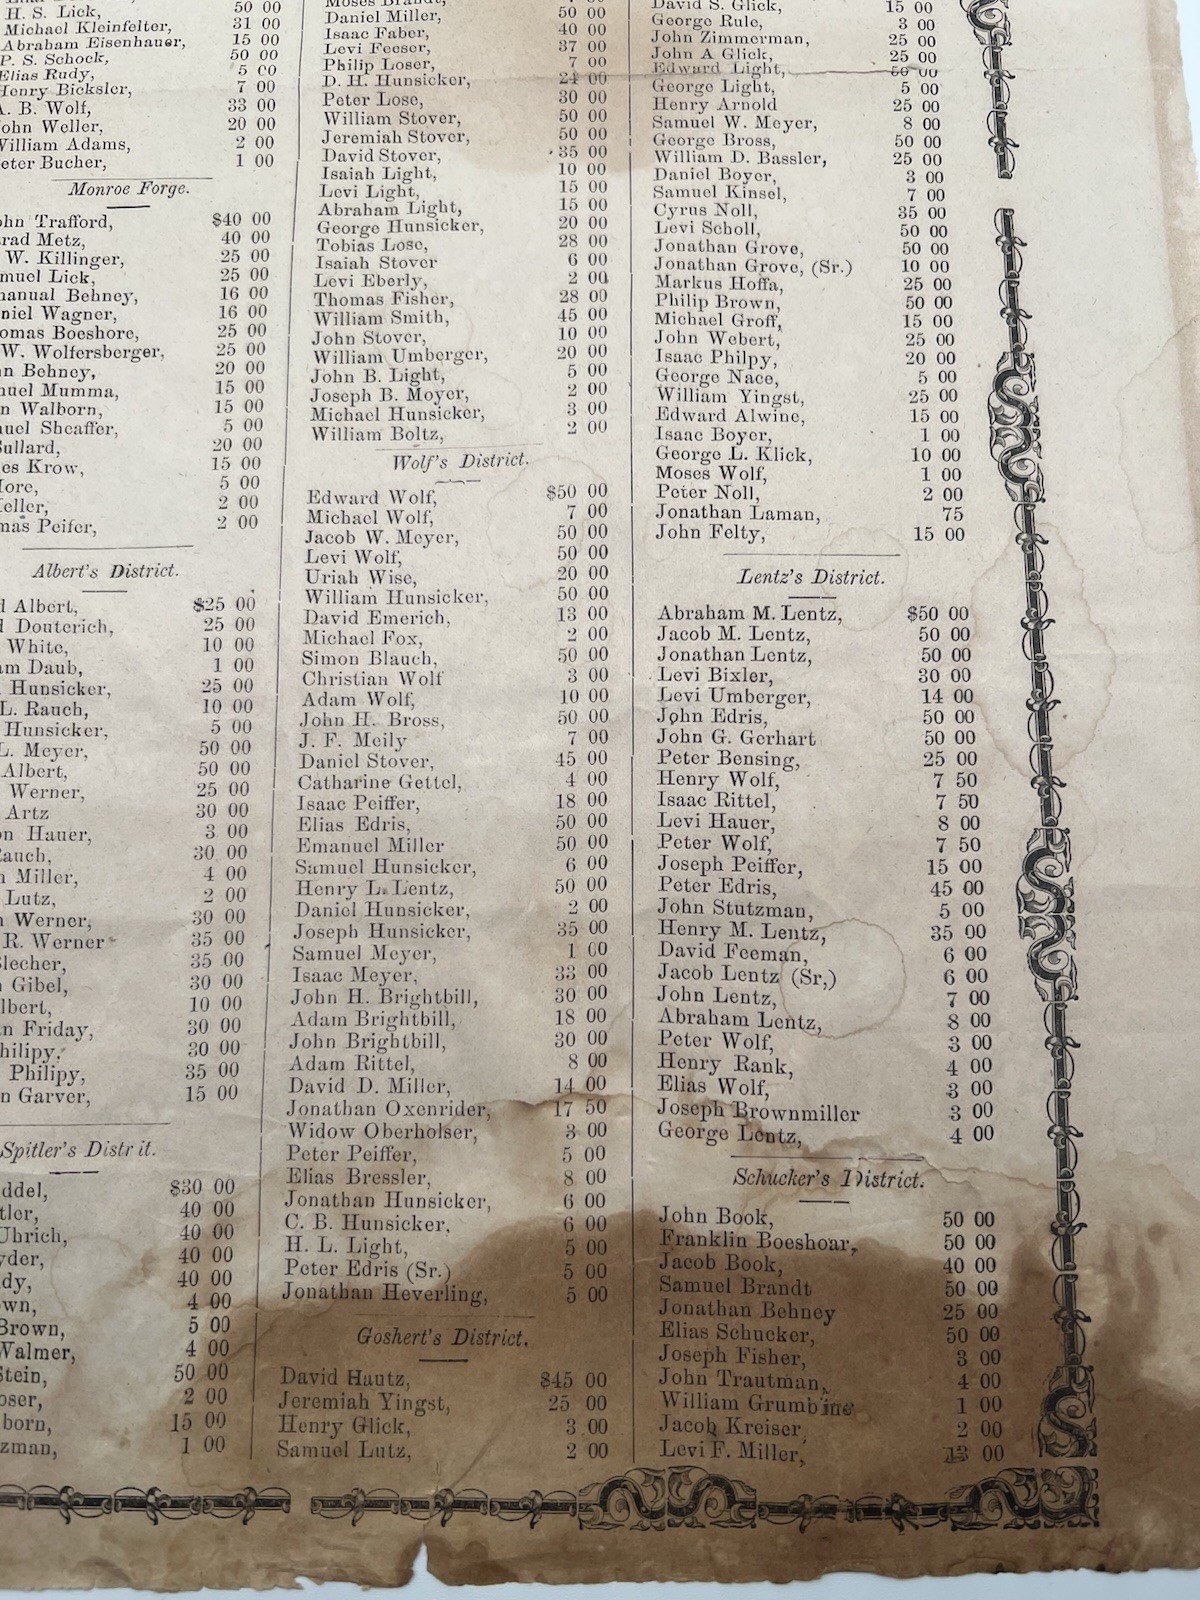 H. S. Lick, 50 00
Michael Kleinfelter, 31 00
Abraham Eisenhauer, 15 00
P. S. Schock, 50 00
Elias Rudy, 5 00
Henry Bicksler, 7 00
A. B. Wolf, 33 00
John Weller, 20 00
William Adams, 2 00
Peter Bucher, 1 00
Monroe Forge.
John Trafford, $40 00
rad Metz, 40 00
W. Killinger, 25 00
muel Lick, 25 00
manual Behney, 16 00
niel Wagner, 16 00
omas Boeshore, 25 00
W. Wolfersberger, 25 00
n Behney, 20 00
nuel Mumma, 15 00
n Walborn, 15 00
nuel Sheaffer, 5 00
ullard, 20 00
es Krow, 15 00
ore, 5 00
eller, 2 00
mas Peifer, 2 00
Albert's District.
d Albert, $25 00
d Douterich, 25 00
White, 10 00
am Daub, 1 00
Hunsicker, 25 00
L. Rauch, 10 00
Hunsicker, 5 00
L. Meyer, 50 00
Albert, 50 00
Werner, 25 00
Artz 30 00
on Hauer, 3 00
Rauch, 30 00
n Miller, 4 00
Lutz, 2 00
n Werner, 30 00
R. Werner 35 00
Blecher, 35 00
n Gibel, 30 00
lbert, 10 00
an Friday, 30 00
Philipy, 30 00
Philipy, 35 00
n Garver, 15 00
Spitler's Distr it.
ddel, $30 00
tler, 40 00
Uhrich, 40 00
yder, 40 00
dy, 40 00
own, 4 00
Brown, 5 00
Walmer, 4 00
Stein, 50 00
oser, 2 00
born, 15 00
zman, 1 00
Moses Brandt,
Daniel Miller, 50 00
Isaac Faber, 40 00
Levi Feeser, 37 00
Philip Loser, 7 00
D. H. Hunsicker, 24 00
Peter Lose, 30 00
William Stover, 50 00
Jeremiah Stover, 50 00
David Stover, 35 00
Isaiah Light, 10 00
Levi Light, 15 00
Abraham Light, 15 00
George Hunsicker, 20 00
Tobias Lose, 28 00
Isaiah Stover 6 00
Levi Eberly, 2 00
Thomas Fisher, 28 00
William Smith, 45 00
John Stover, 10 00
William Umberger, 20 00
John B. Light, 5 00
Joseph B. Moyer, 2 00
Michael Hunsicker, 3 00
William Boltz, 2 00
Wolf's District.
Edward Wolf, $50 00
Michael Wolf, 7 00
Jacob W. Meyer, 50 00
Levi Wolf, 50 00
Uriah Wise, 20 00
William Hunsicker, 50 00
David Emerich, 13 00
Michael Fox, 2 00
Simon Blauch, 50 00
Christian Wolf 3 00
Adam Wolf, 10 00
John H. Bross, 50 00
J. F. Meily 7 00
Daniel Stover, 45 00
Catharine Gettel, 4 00
Isaac Peiffer, 18 00
Elias Edris, 50 00
Emanuel Miller 50 00
Samuel Hunsicker, 6 00
Henry L. Lentz, 50 00
Daniel Hunsicker, 2 00
Joseph Hunsicker, 35 00
Samuel Meyer, 1 00
Isaac Meyer, 33 00
John H. Brightbill, 30 00
Adam Brightbill, 18 00
John Brightbill, 30 00
Adam Rittel, 8 00
David D. Miller, 14 00
Jonathan Oxenrider, 17 50
Widow Oberholser, 3 00
Peter Peiffer, 5 00
Elias Bressler, 8 00
Jonathan Hunsicker, 6 00
C. B. Hunsicker, 6 00
H. L. Light, 5 00
Peter Edris (Sr.) 5 00
Jonathan Heverling, 5 00
Goshert's District.
David Hautz, $45 00
Jeremiah Yingst, 25 00
Henry Glick, 3 00
Samuel Lutz, 2 00
David S. Glick, 15 00
George Rule, 3 00
John Zimmerman, 25 00
John A Glick, 25 00
Edward Light, 50 00
George Light, 5 00
Henry Arnold 25 00
Samuel W. Meyer, 8 00
George Bross, 50 00
William D. Bassler, 25 00
Daniel Boyer, 3 00
Samuel Kinsel, 7 00
Cyrus Noll, 35 00
Levi Scholl, 50 00
Jonathan Grove, 50 00
Jonathan Grove, (Sr.) 10 00
Markus Hoffa, 25 00
Philip Brown, 50 00
Michael Groff, 15 00
John Webert, 25 00
Isaac Philpy, 20 00
George Nace, 5 00
William Yingst, 25 00
Edward Alwine, 15 00
Isaac Boyer, 1 00
George L. Klick, 10 00
Moses Wolf, 1 00
Peter Noll, 2 00
Jonathan Laman, 75
John Felty, 15 00
Lentz's District.
Abraham M. Lentz, $50 00
Jacob M. Lentz, 50 00
Jonathan Lentz, 50 00
Levi Bixler, 30 00
Levi Umberger, 14 00
John Edris, 50 00
John G. Gerhart 50 00
Peter Bensing, 25 00
Henry Wolf, 7 50
Isaac Rittel, 7 50
Levi Hauer, 8 00
Peter Wolf, 7 50
Joseph Peiffer, 15 00
Peter Edris, 45 00
John Stutzman, 5 00
Henry M. Lentz, 35 00
David Feeman, 6 00
Jacob Lentz (Sr,) 6 00
John Lentz, 7 00
Abraham Lentz, 8 00
Peter Wolf, 3 00
Henry Rank, 4 00
Elias Wolf, 3 00
Joseph Brownmiller 3 00
George Lentz, 4 00
Schucker's District.
John Book, 50 00
Franklin Boeshoar, 50 00
Jacob Book, 40 00
Samuel Brandt 50 00
Jonathan Behney 25 00
Elias Schucker, 50 00
Joseph Fisher, 3 00
John Trautman, 4 00
William Grumbine 1 00
Jacob Kreiser 2 00
Levi F. Miller, 13 00